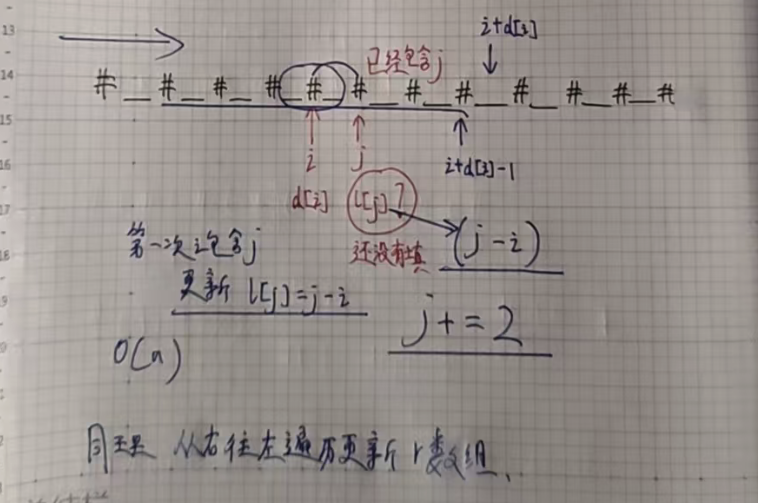 i+d[i]
已经包含j
#_#_#_#_#_#_#_#_#_#_#_#
i j i+d[i]-1
d[i] l[j]? (j-i)
还没有填
第一次i包含j
更新 l[j]=j-i
j+=2
O(n)
同理 从右往左遍历更新r数组、